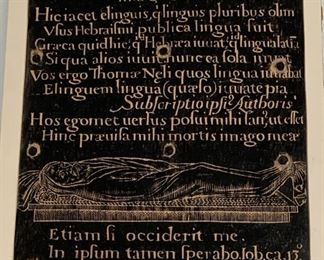 Hic iacet elinguis, q̃ linguis pluribus olim
Vsus Hebraismi, publica lingua fuit
Græca quid hîc
Si qua alios iuuit nunc ea sola
Vos ergo Thomæ Neli quos lingua iuuabat
Elinguem lingua (quæso) iuuate pia
Subscriptio ipsi⁹ Authoris
Hos egomet versus posui mihi san⁹, ut esset
Hinc præuisa mihi mortis imago meæ
Etiam si occiderit me,
In ipsum tamen sperabo. Iob, ca. 13°